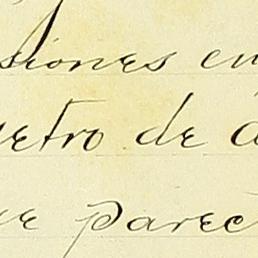 siones en
etro de a
ue parec